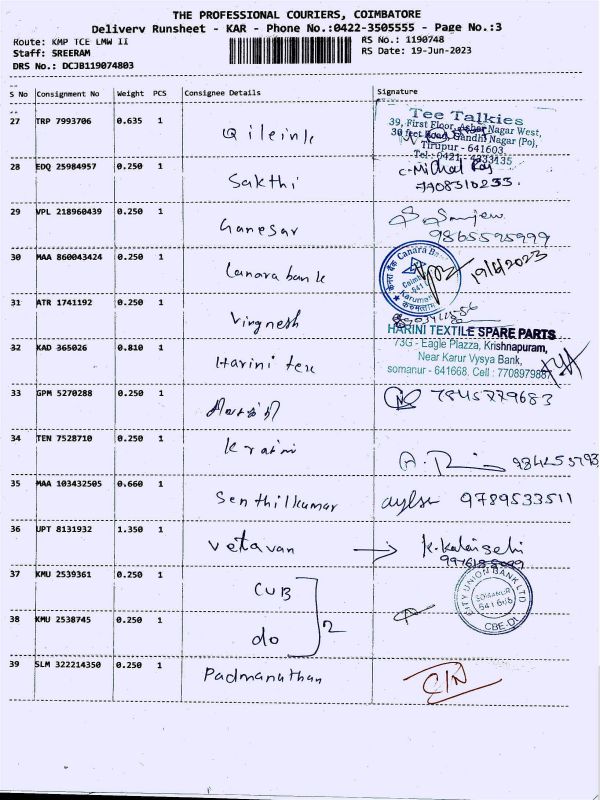 THE PROFESSIONAL COURIERS, COIMBATORE
Delivery Runsheet - KAR - Phone No.:0422-3505555 - Page No.:3
Route: KMP TCE LMW II
RS No.: 1190748
Staff: SREERAM
RS Date: 19-Jun-2023
DRS No.: DCJB119074803
S No Consignment No Weight PCS Consignee Details Signature
27 TRP 7993706 0.635 1
Tee Talkies
39, First Floor, Asher Nagar West,
30 feet Road, Gandhi Nagar (Po),
Tirupur - 641603.
Tel: 0421 - 4333135
28 EDQ 25984957 0.250 1 Sakthi
7708310233.
29 VPL 218960439 0.250 1 Ganesar
9865595999
30 MAA 860043424 0.250 1 Canara bank
Canara Bank
19/6/2023
31 ATR 1741192 0.250 1 Virgnesh
32 KAD 365026 0.810 1 Harini tex
HARINI TEXTILE SPARE PARTS
73G - Eagle Plazza, Krishnapuram,
Near Karur Vysya Bank,
somanur - 641668. Cell : 7708979887
33 GPM 5270288 0.250 1
7845779683
34 TEN 7528710 0.250 1
35 MAA 103432505 0.660 1 Senthilkumar
9789533511
36 UPT 8131932 1.350 1 vetavan → K.Kalaiselvi
37 KMU 2539361 0.250 1 CUB
CITY UNION BANK LTD
SOMANUR
641668
CBE-DT
38 KMU 2538745 0.250 1 do
2
39 SLM 322214350 0.250 1 Padmanathan